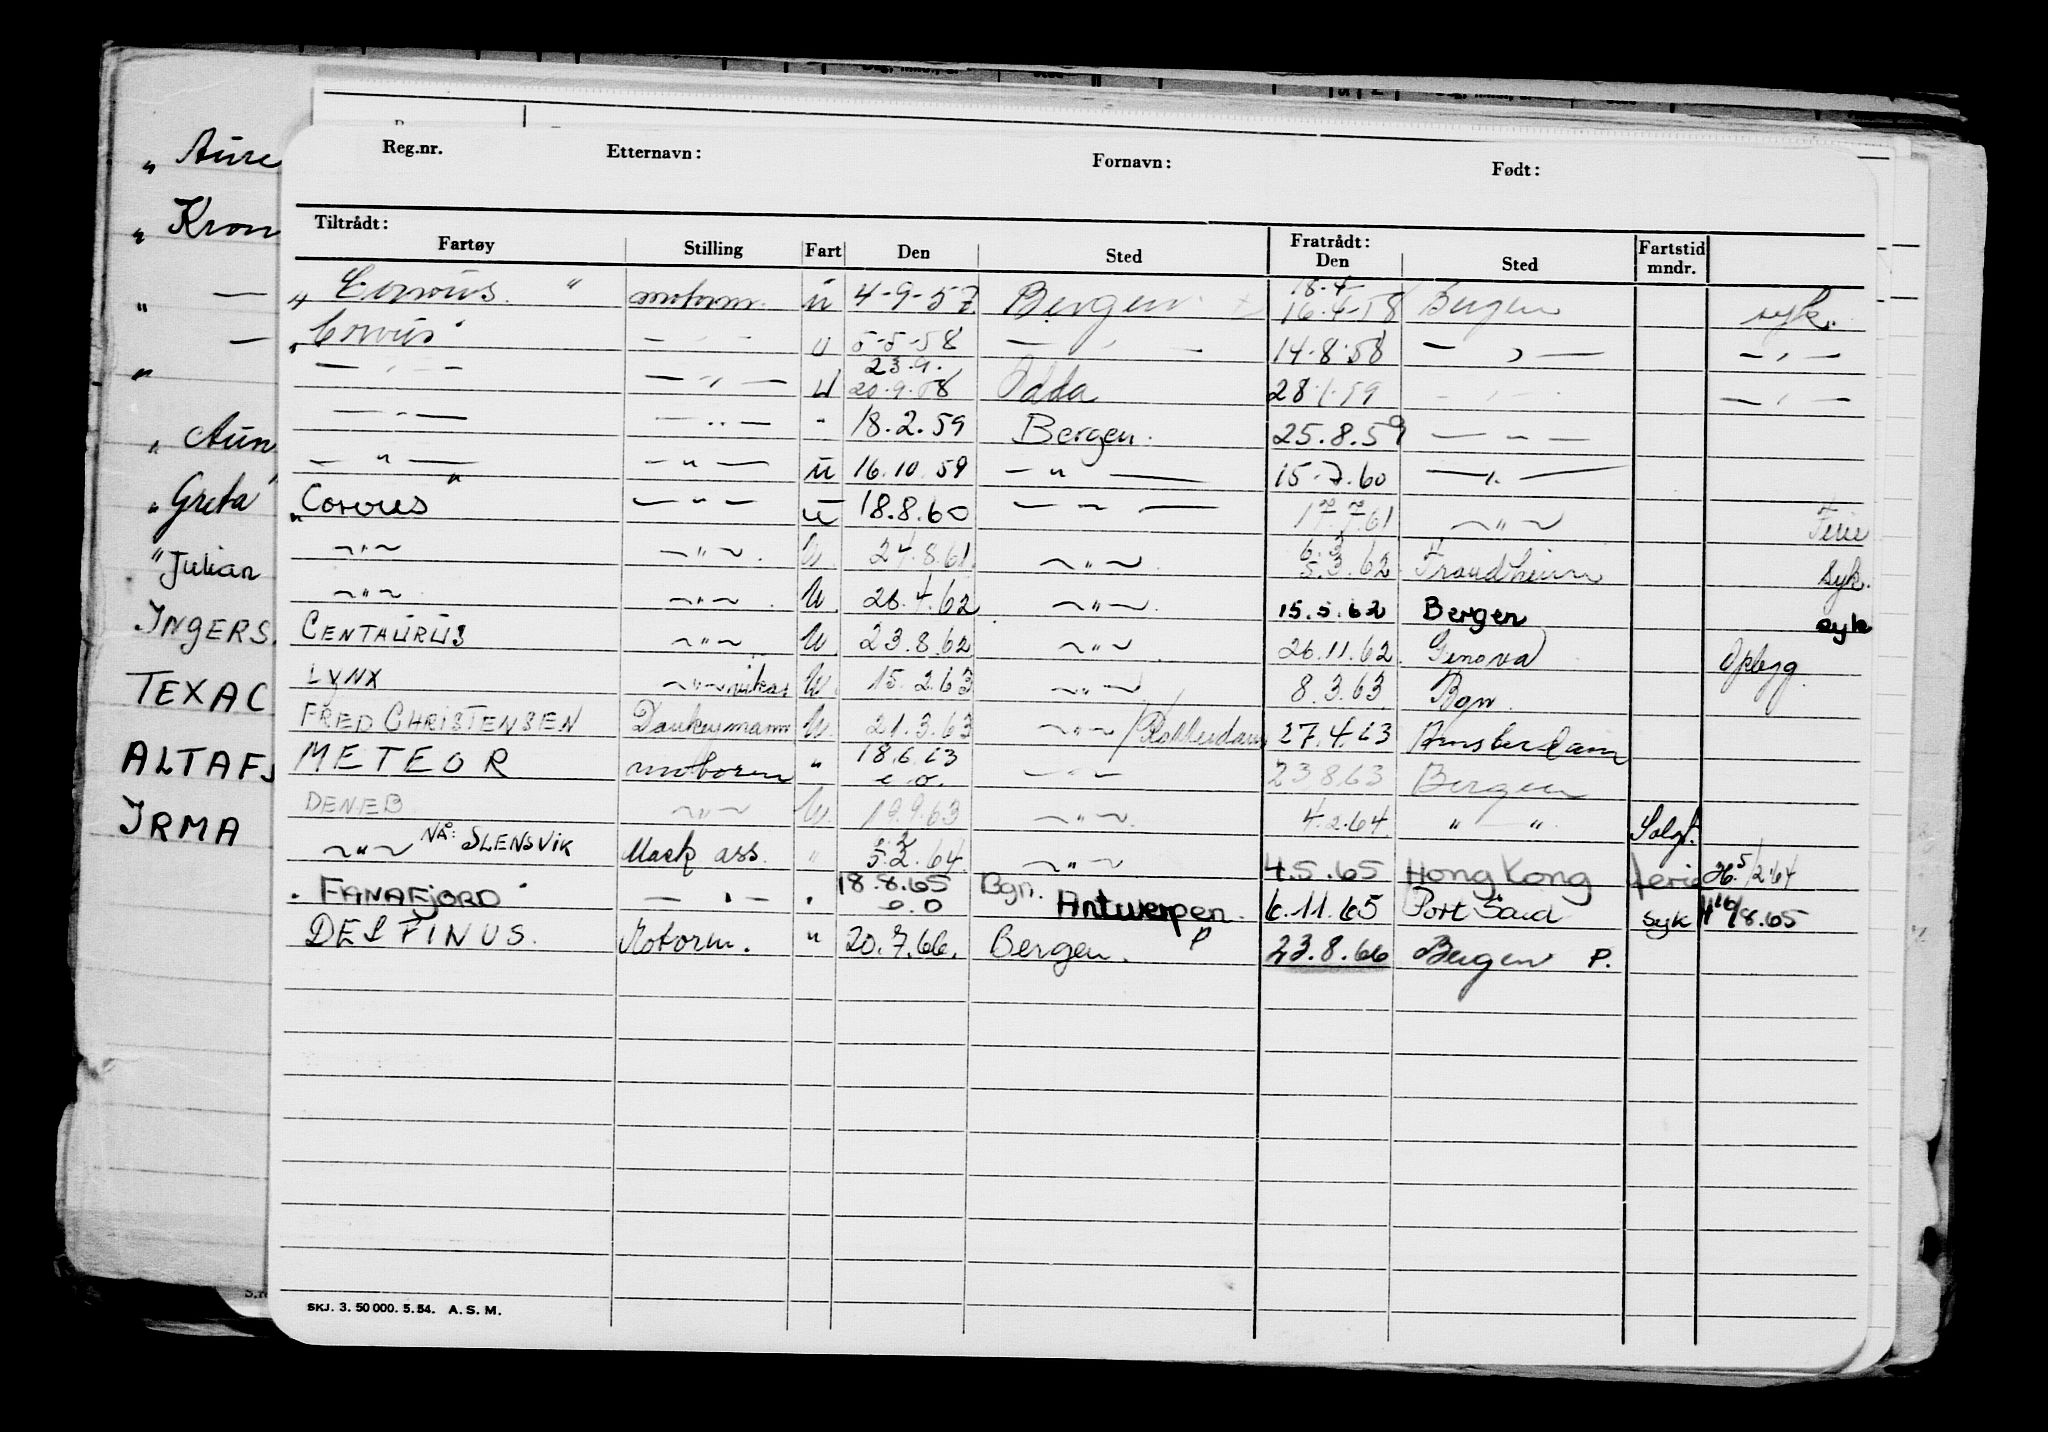 „ Aure
„ Kron
„ —
„ —
„ Aun
„ Greta"
"Julian
INGERS.
TEXAC
ALTAFJ
IRMA
Reg.nr. Etternavn: Fornavn: Født:
Tiltrådt: Fratrådt:
Fartøy Stilling Fart Den Sted Den Sted Fartstid mndr.
18.4
„ Corvus " motorm. u 4-9-57 Bergen 16.4-58 Bergen syk.
„ Corvus" — „ — u 5-5-58 — „ — 14.8.58 — „ — — „ —
23.9.
— „ — — „ — u 20.9.58 Odda 28.1.59 — „ — — „ —
— „ — — „ — " 18.2.59 Bergen. 25.8.59 — „ —
— „ — — „ — u 16.10.59 — „ — 15-7.60 — „ —
„ Corvus" — „ — u 18.8.60 — „ — 17.7.61 — „ — Ferie
— „ — — „ — u 24.8.61. — „ — 6.3 5.3.62 Trondheim syk.
— „ — — „ — u 26.4.62 — „ — 15.5.62 Bergen syk
CENTAURUS — „ — u 23.8.62 — „ — 26.11.62. Genova Opbyg.
LYNX — „ — vikar u 15.2.63 — „ — 8.3.63. Bgn.
FRED CHRISTENSEN Donkeymann u 21.3.63 — „ — / Rotterdam 27.4.63 Amsterdam
METEOR motorm " 18.6.63 e.o. — „ — 23.8.63 Bergen
DENEB — „ — u 19.9.63 — „ — 4.2.64. " — " Solgt.
— „ — NÅ: SLENSVIK Mask ass. " 5.2.64. — „ — 4.5.65 Hong Kong ferie 26.5/2.64
„ FANAFJORD" — „ — " 18.8.65 e.o Bgn. Antwerpen. 6.11.65 Port Said syk 18.65
DELFINUS. Motorm. " 20.7.66. Bergen. P 23.8.66 Bergen P.
SKJ. 3. 50 000. 5. 54. A. S. M.